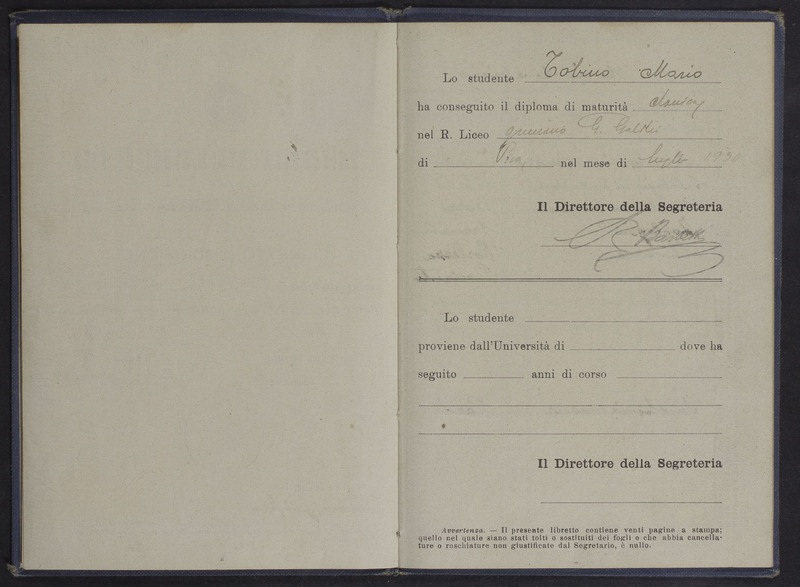 Lo studente Tobino Mario
ha conseguito il diploma di maturità
nel R. Liceo ginnasio G. Galilei
di Pisa nel mese di luglio 1930
Il Direttore della Segreteria
Lo studente
proviene dall'Università di dove ha
seguito anni di corso
Il Direttore della Segreteria
Avvertenza. — Il presente libretto contiene venti pagine a stampa;
quello nel quale siano stati tolti o sostituiti dei fogli o che abbia cancella-
ture o raschiature non giustificate dal Segretario, è nullo.